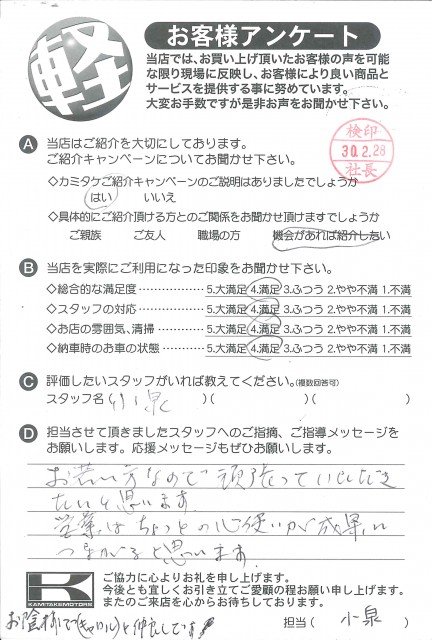 軽
お客様アンケート
当店では、お買い上げ頂いたお客様の声を可能
な限り現場に反映し、お客様により良い商品と
サービスを提供する事に努めています。
大変お手数ですが是非お声をお聞かせ下さい。
A 当店はご紹介を大切にしております。
ご紹介キャンペーンについてお聞かせ下さい。
検印
30.2.28
社長
◇カミタケご紹介キャンペーンのご説明はありましたでしょうか
はい いいえ
◇具体的にご紹介頂ける方とのご関係をお聞かせ頂けますでしょうか
ご親族 ご友人 職場の方 機会があれば紹介したい
B 当店を実際にご利用になった印象をお聞かせ下さい。
◇総合的な満足度 5.大満足 4.満足 3.ふつう 2.やや不満 1.不満
◇スタッフの対応 5.大満足 4.満足 3.ふつう 2.やや不満 1.不満
◇お店の雰囲気、清掃 5.大満足 4.満足 3.ふつう 2.やや不満 1.不満
◇納車時のお車の状態 5.大満足 4.満足 3.ふつう 2.やや不満 1.不満
C 評価したいスタッフがいれば教えてください。(複数回答可)
スタッフ名( 小泉 )( )( )
D 担当させて頂きましたスタッフへのご指摘、ご指導メッセージを
お願いします。応援メッセージもぜひお願いします。
お若い方なので頑張っていただき
たいと思います。
営業はちょっとの心使いが成果に
つながると思います。
K
KAMITAKEMOTORS
ご協力に心よりお礼を申し上げます。
今後とも宜しくお引き立てご愛顧の程お願い申し上げます。
またのご来店を心からお待ちしております。
お陰様で(キャロル)と仲良しです
担当( 小泉 )